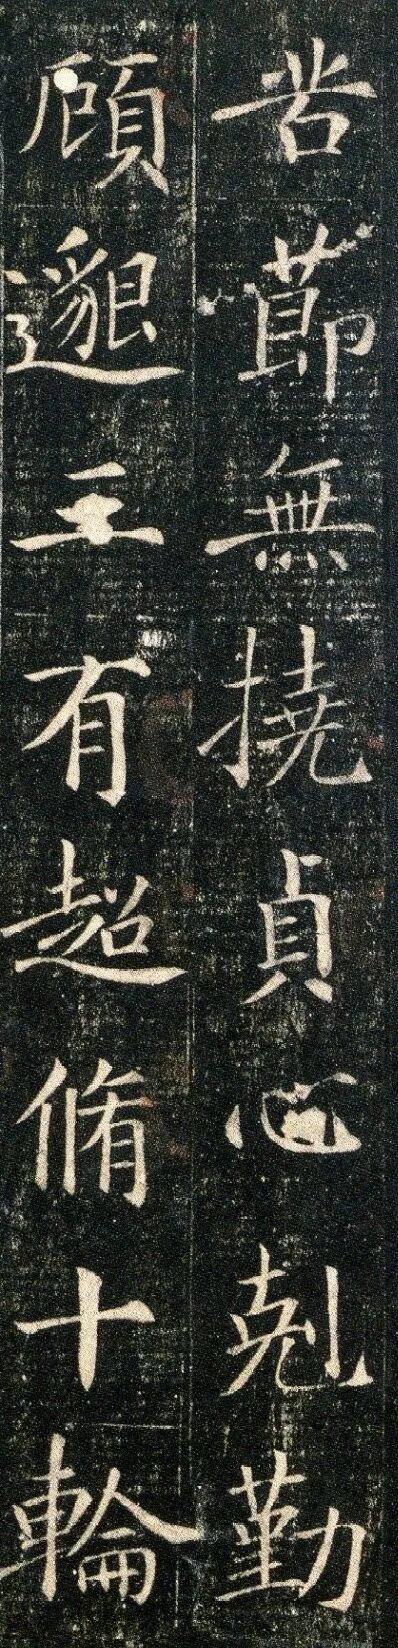 苦節無撓貞心剋勤
顧邈三有超脩十輪